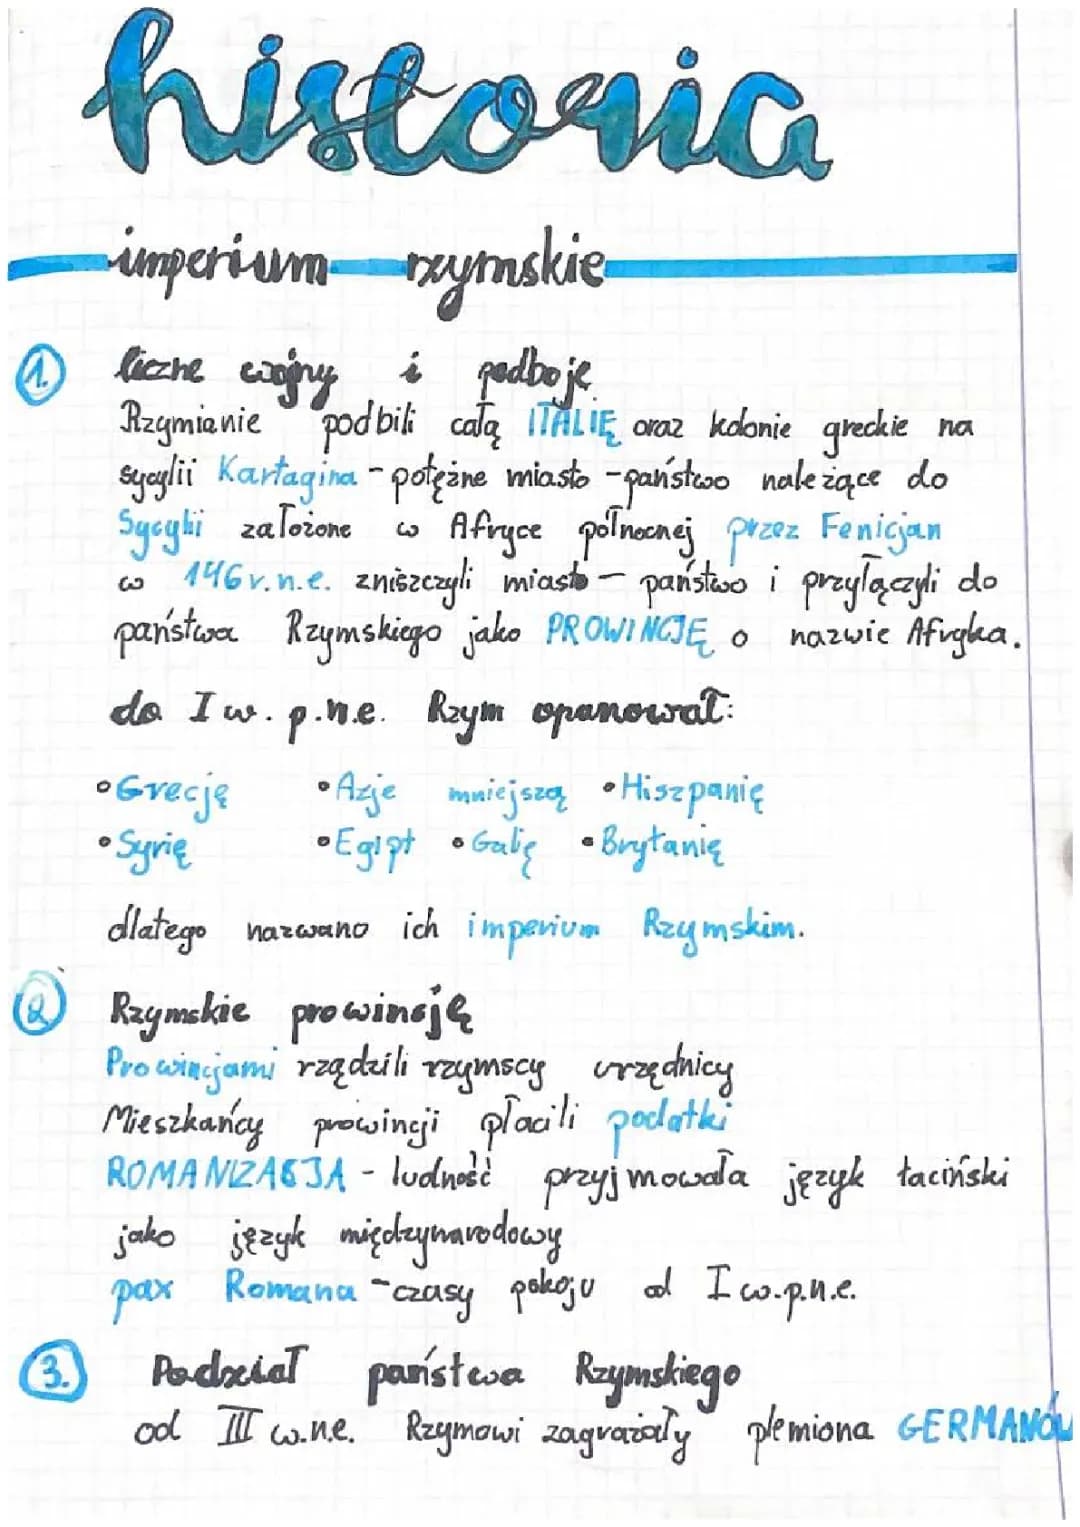 historia
imperium rzymskie
1. liczne wojny i podboje
Rzymianie podbili całą ITALIĘ oraz kolonie greckie na
sycylii Kartagina - potężne miasto - państwo należące do
Sycylii założone w Afryce północnej przez Fenicjan
w 146 r.n.e. zniszczyli miasto - państwo i przyłączyli do
państwa Rzymskiego jako PROWINCJĘ o nazwie Afryka.
do I w. p.n.e. Rzym opanował:
• Grecję • Azje mniejszą • Hiszpanię
• Syrię • Egipt • Galię • Brytanię
dlatego nazwano ich imperium Rzymskim.
2 Rzymskie prowincję
Prowincjami rządzili rzymscy urzędnicy
Mieszkańcy prowincji płacili podatki
ROMANIZACJA - ludność przyjmowała język łaciński
jako język międzynarodowy
pax Romana - czasy pokoju od I w.p.n.e.
3. Podział państwa Rzymskiego
od III w.n.e. Rzymowi zagrażały plemiona GERMANÓW